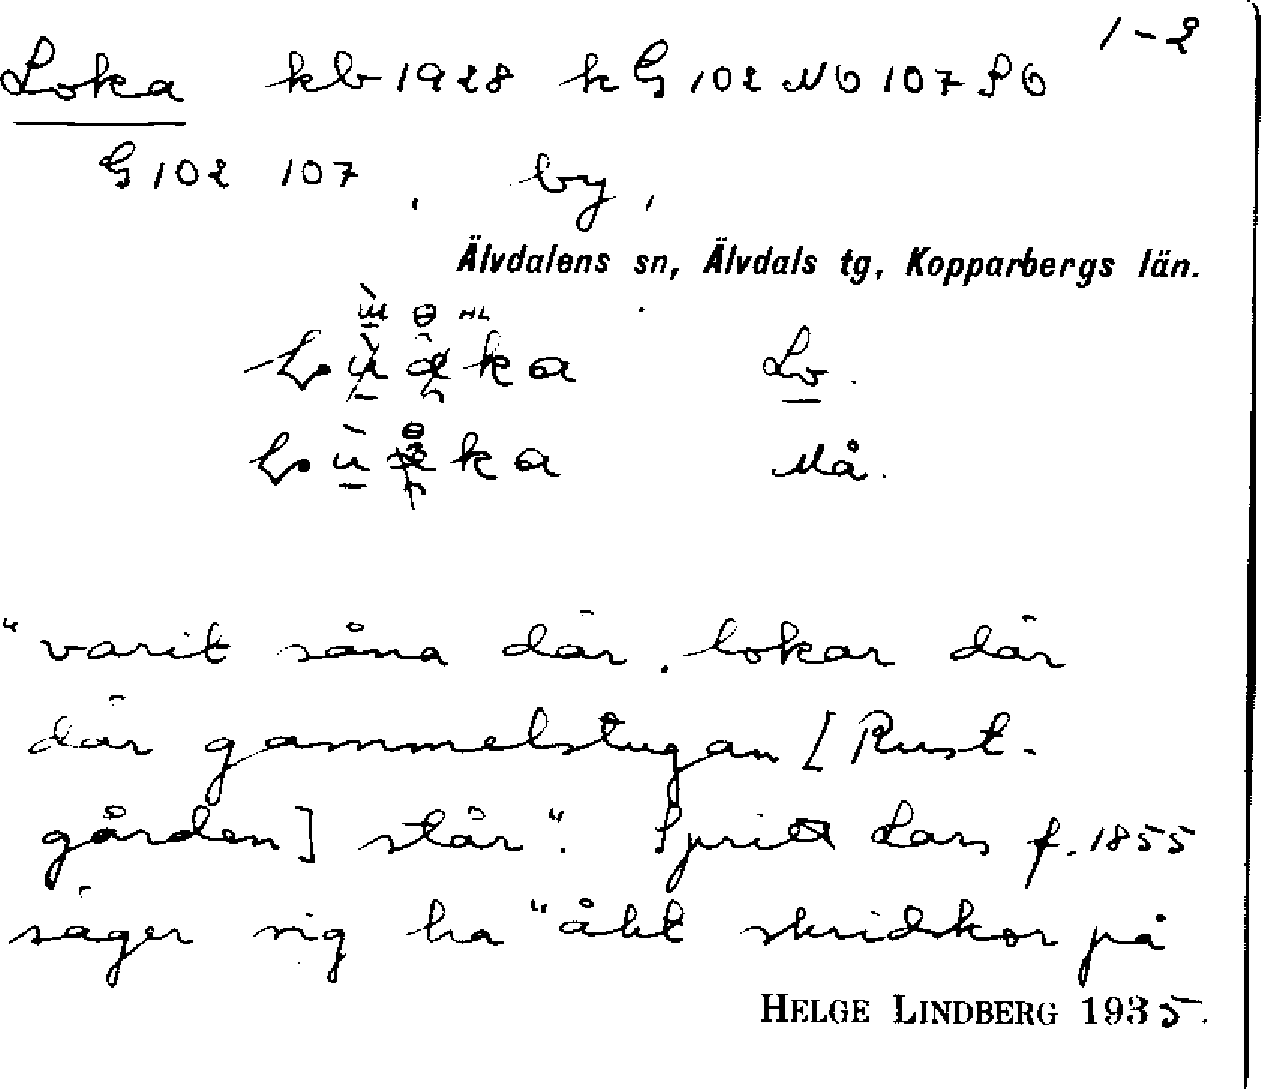 1-2
Loka kb 1928 k G 102 NO 107 SO
G 102 107, by,
Älvdalens sn, Älvdals tg, Kopparbergs län.
Lo.
Må.
"varit såna där, lokar där
där gammelstugan [Rust-
gården] står". Spritt Lars f. 1855
säger sig ha "åkt skridskor på
HELGE LINDBERG 1935.